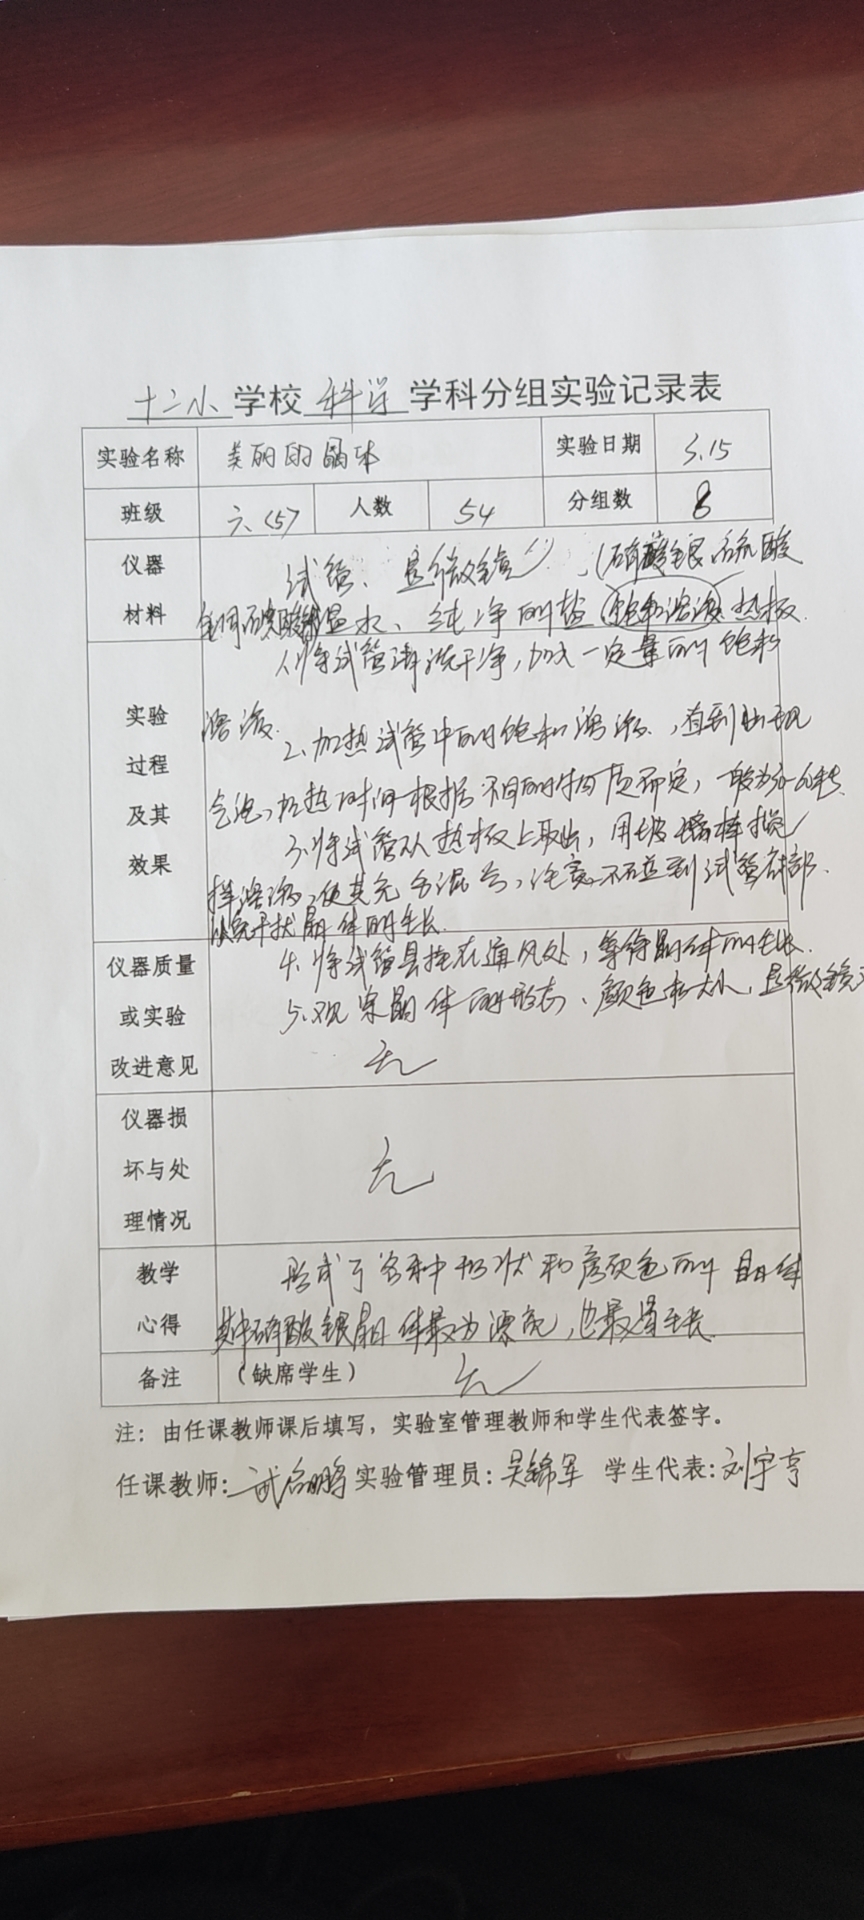 十二小学校 科学 学科分组实验记录表
实验名称 美丽的晶体 实验日期 3.15
班级 六、<5> 人数 54 分组数 8
仪器 试管、显微镜、(硝酸银 硫酸
材料 温水、纯净的盐 饱和溶液 热板
1.将试管清洗干净,加入一定量的饱和
实验 溶液.
过程 2.加热试管中的饱和溶液,直到出现
及其 气泡,加热时间根据不同的物质而定,一般为30-60秒.
效果 3.将试管从热板上取出,用玻璃棒搅
拌溶液,使其充分混匀,注意不碰到试管底部.
以免干扰晶体的生长.
仪器质量 4.将试管悬挂在通风处,等待晶体的生长.
或实验 5.观察晶体的形态、颜色和大小,显微镜
改进意见 无
仪器损
坏与处 无
理情况
教学 形成了各种形状和颜色的晶体
心得 其中硝酸银晶体最为漂亮,也最易生长
备注 (缺席学生) 无
注:由任课教师课后填写,实验室管理教师和学生代表签字。
任课教师: 实验管理员:吴锦军 学生代表:刘宇亨